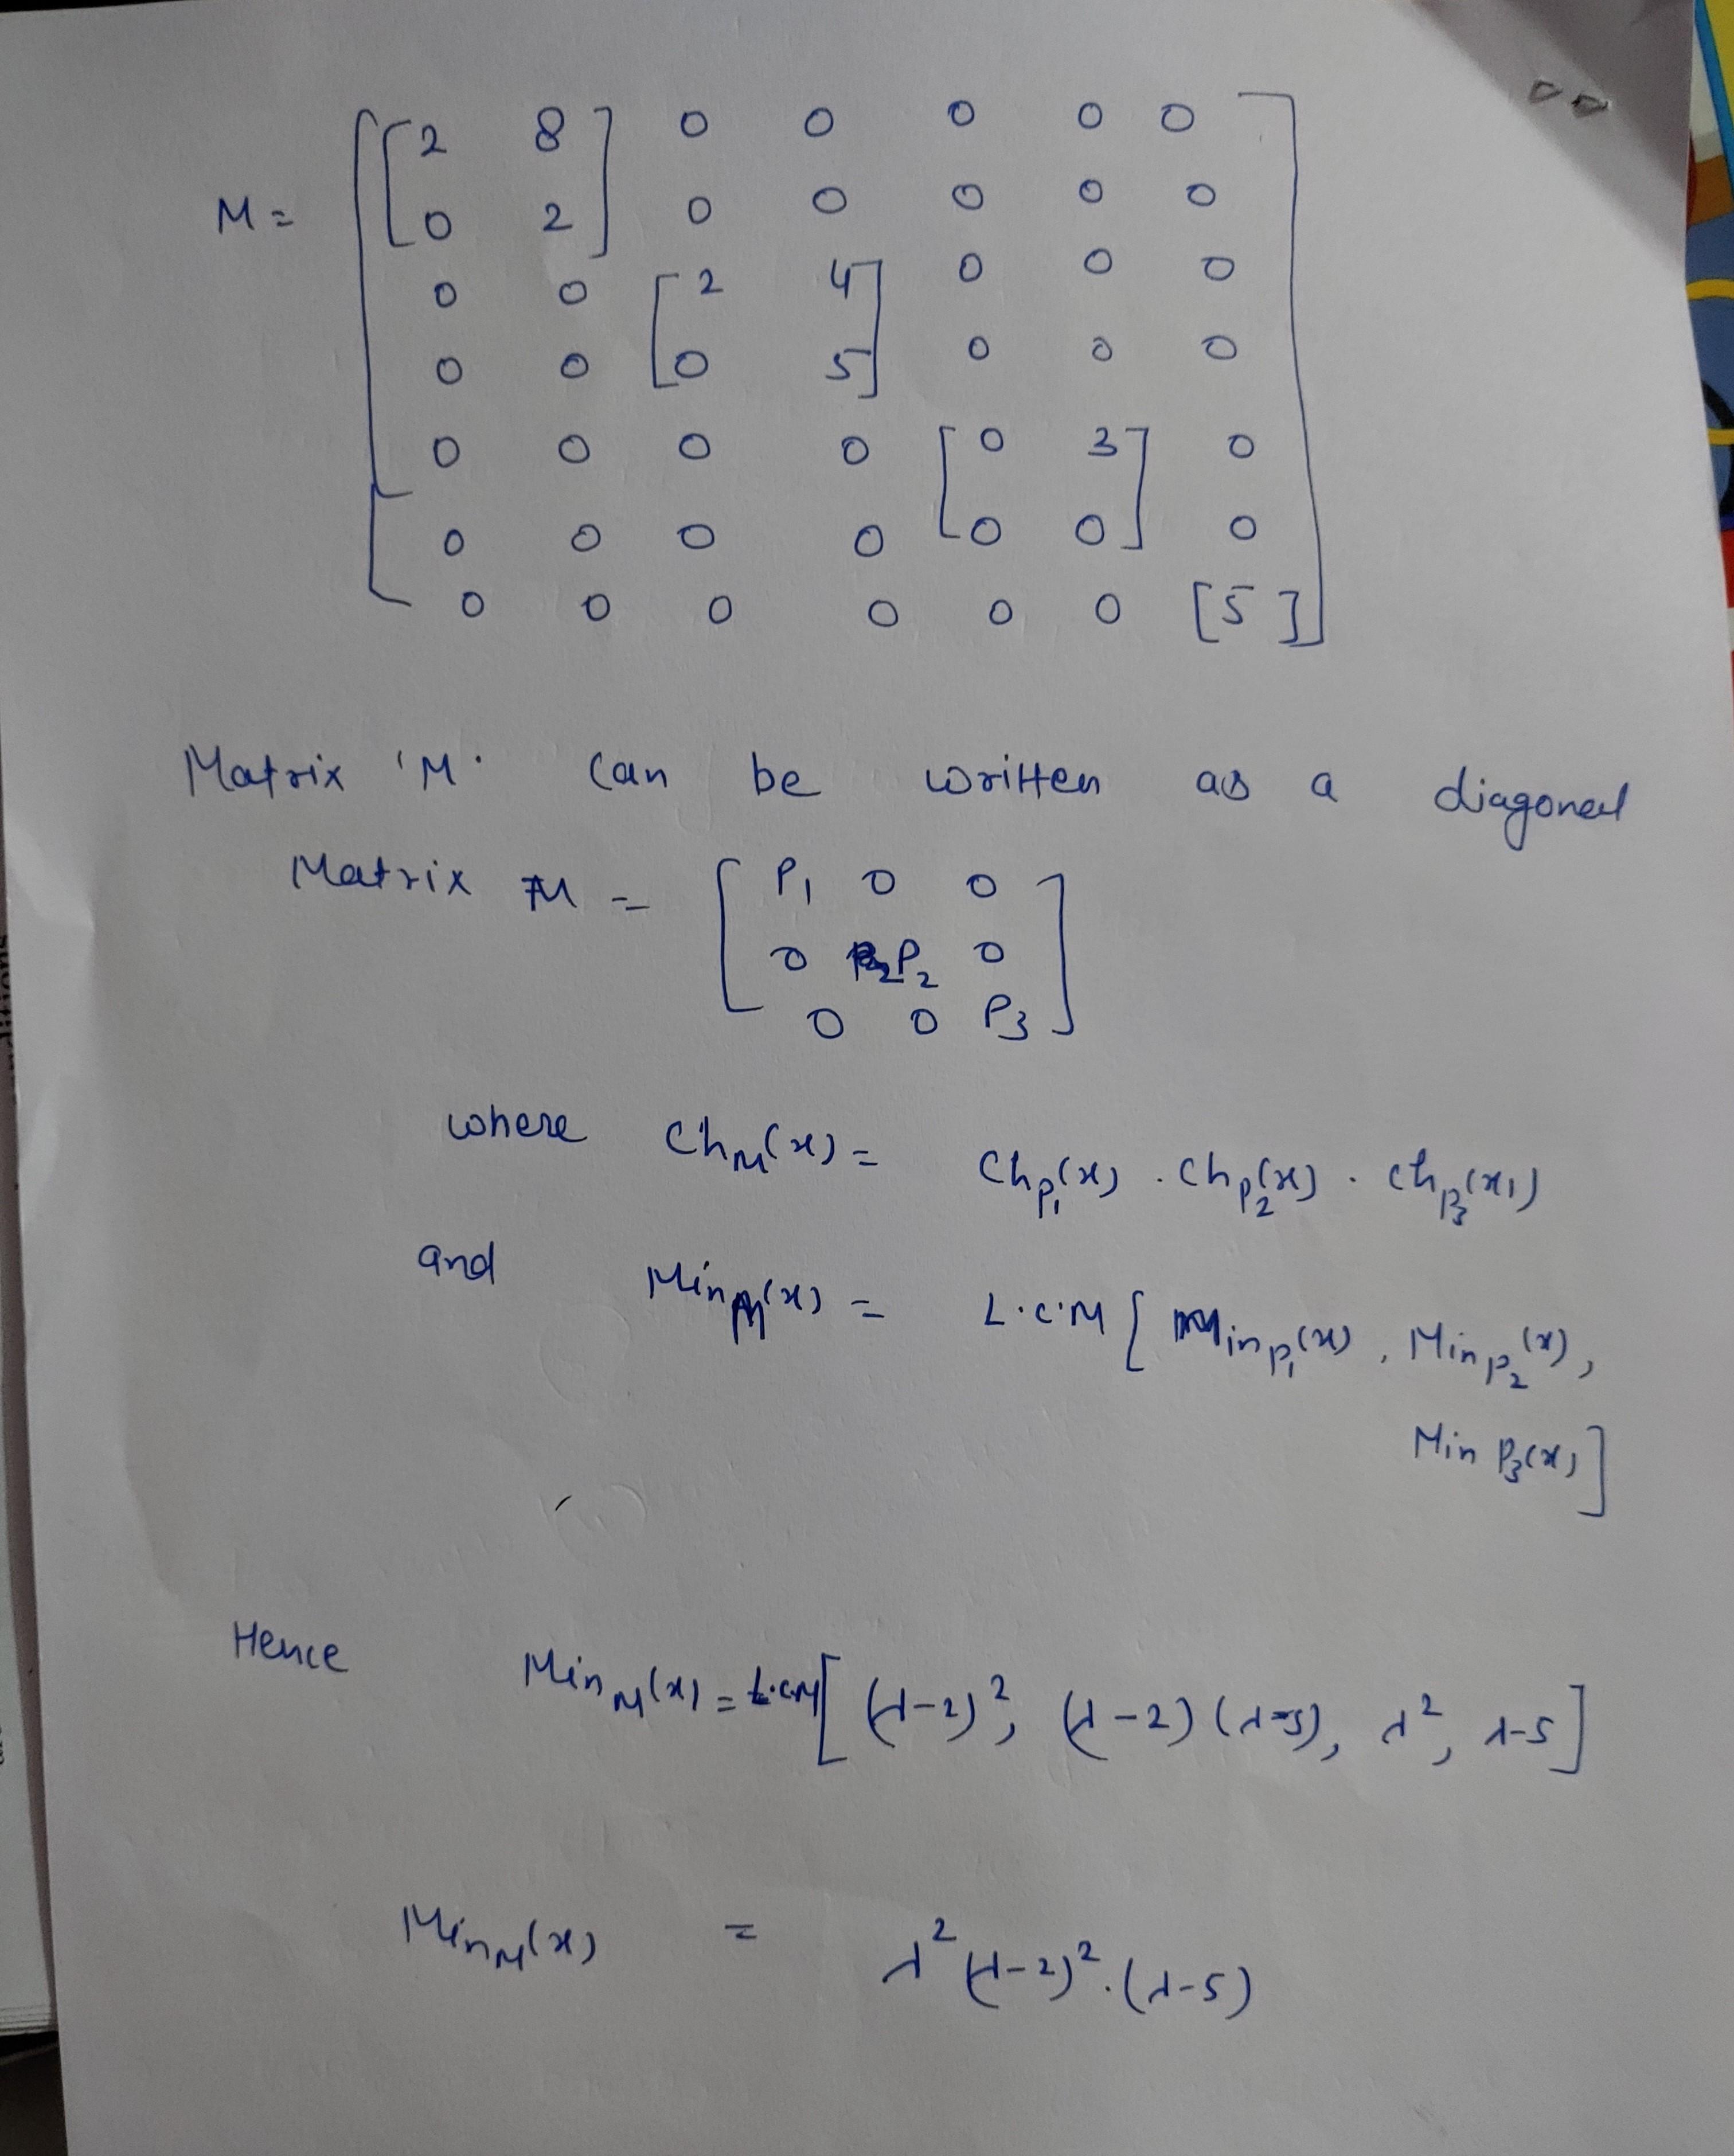 [2 8] 0 0 0 0 0
M = [0 2] 0 0 0 0 0
0 0 [2 4] 0 0 0
0 0 [0 5] 0 0 0
0 0 0 0 [0 3] 0
0 0 0 0 [0 0] 0
0 0 0 0 0 0 [5]
Matrix 'M' can be written as a diagonal
Matrix M = [P₁ 0 0
0 P₂ 0
0 0 P₃]
where Ch_M(x) = Ch_P₁(x) . Ch_P₂(x) . Ch_P₃(x)
and Min_M(x) = L.C.M [Min_P₁(x), Min_P₂(x),
Min P₃(x)]
Hence Min_M(x) = L.C.M [(λ-2)², (λ-2)(λ-5), λ², λ-5]
Min_M(x) = λ²(λ-2)².(λ-5)